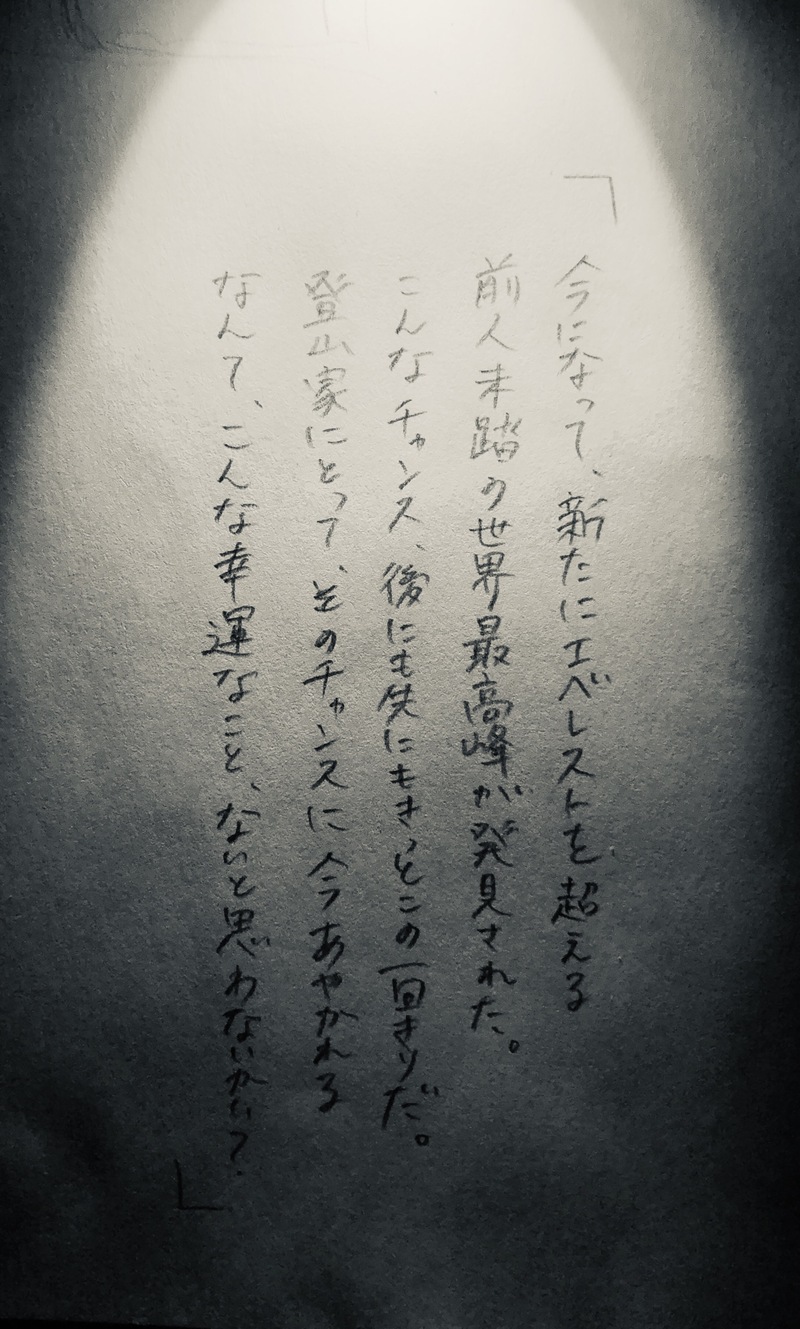 「
今になって、新たにエベレストを超える
前人未踏の世界最高峰が発見された。
こんなチャンス、後にも先にもきっとこの一回きりだ。
登山家にとって、そのチャンスに今あやかれる
なんて、こんな幸運なこと、ないと思わないかい？
」